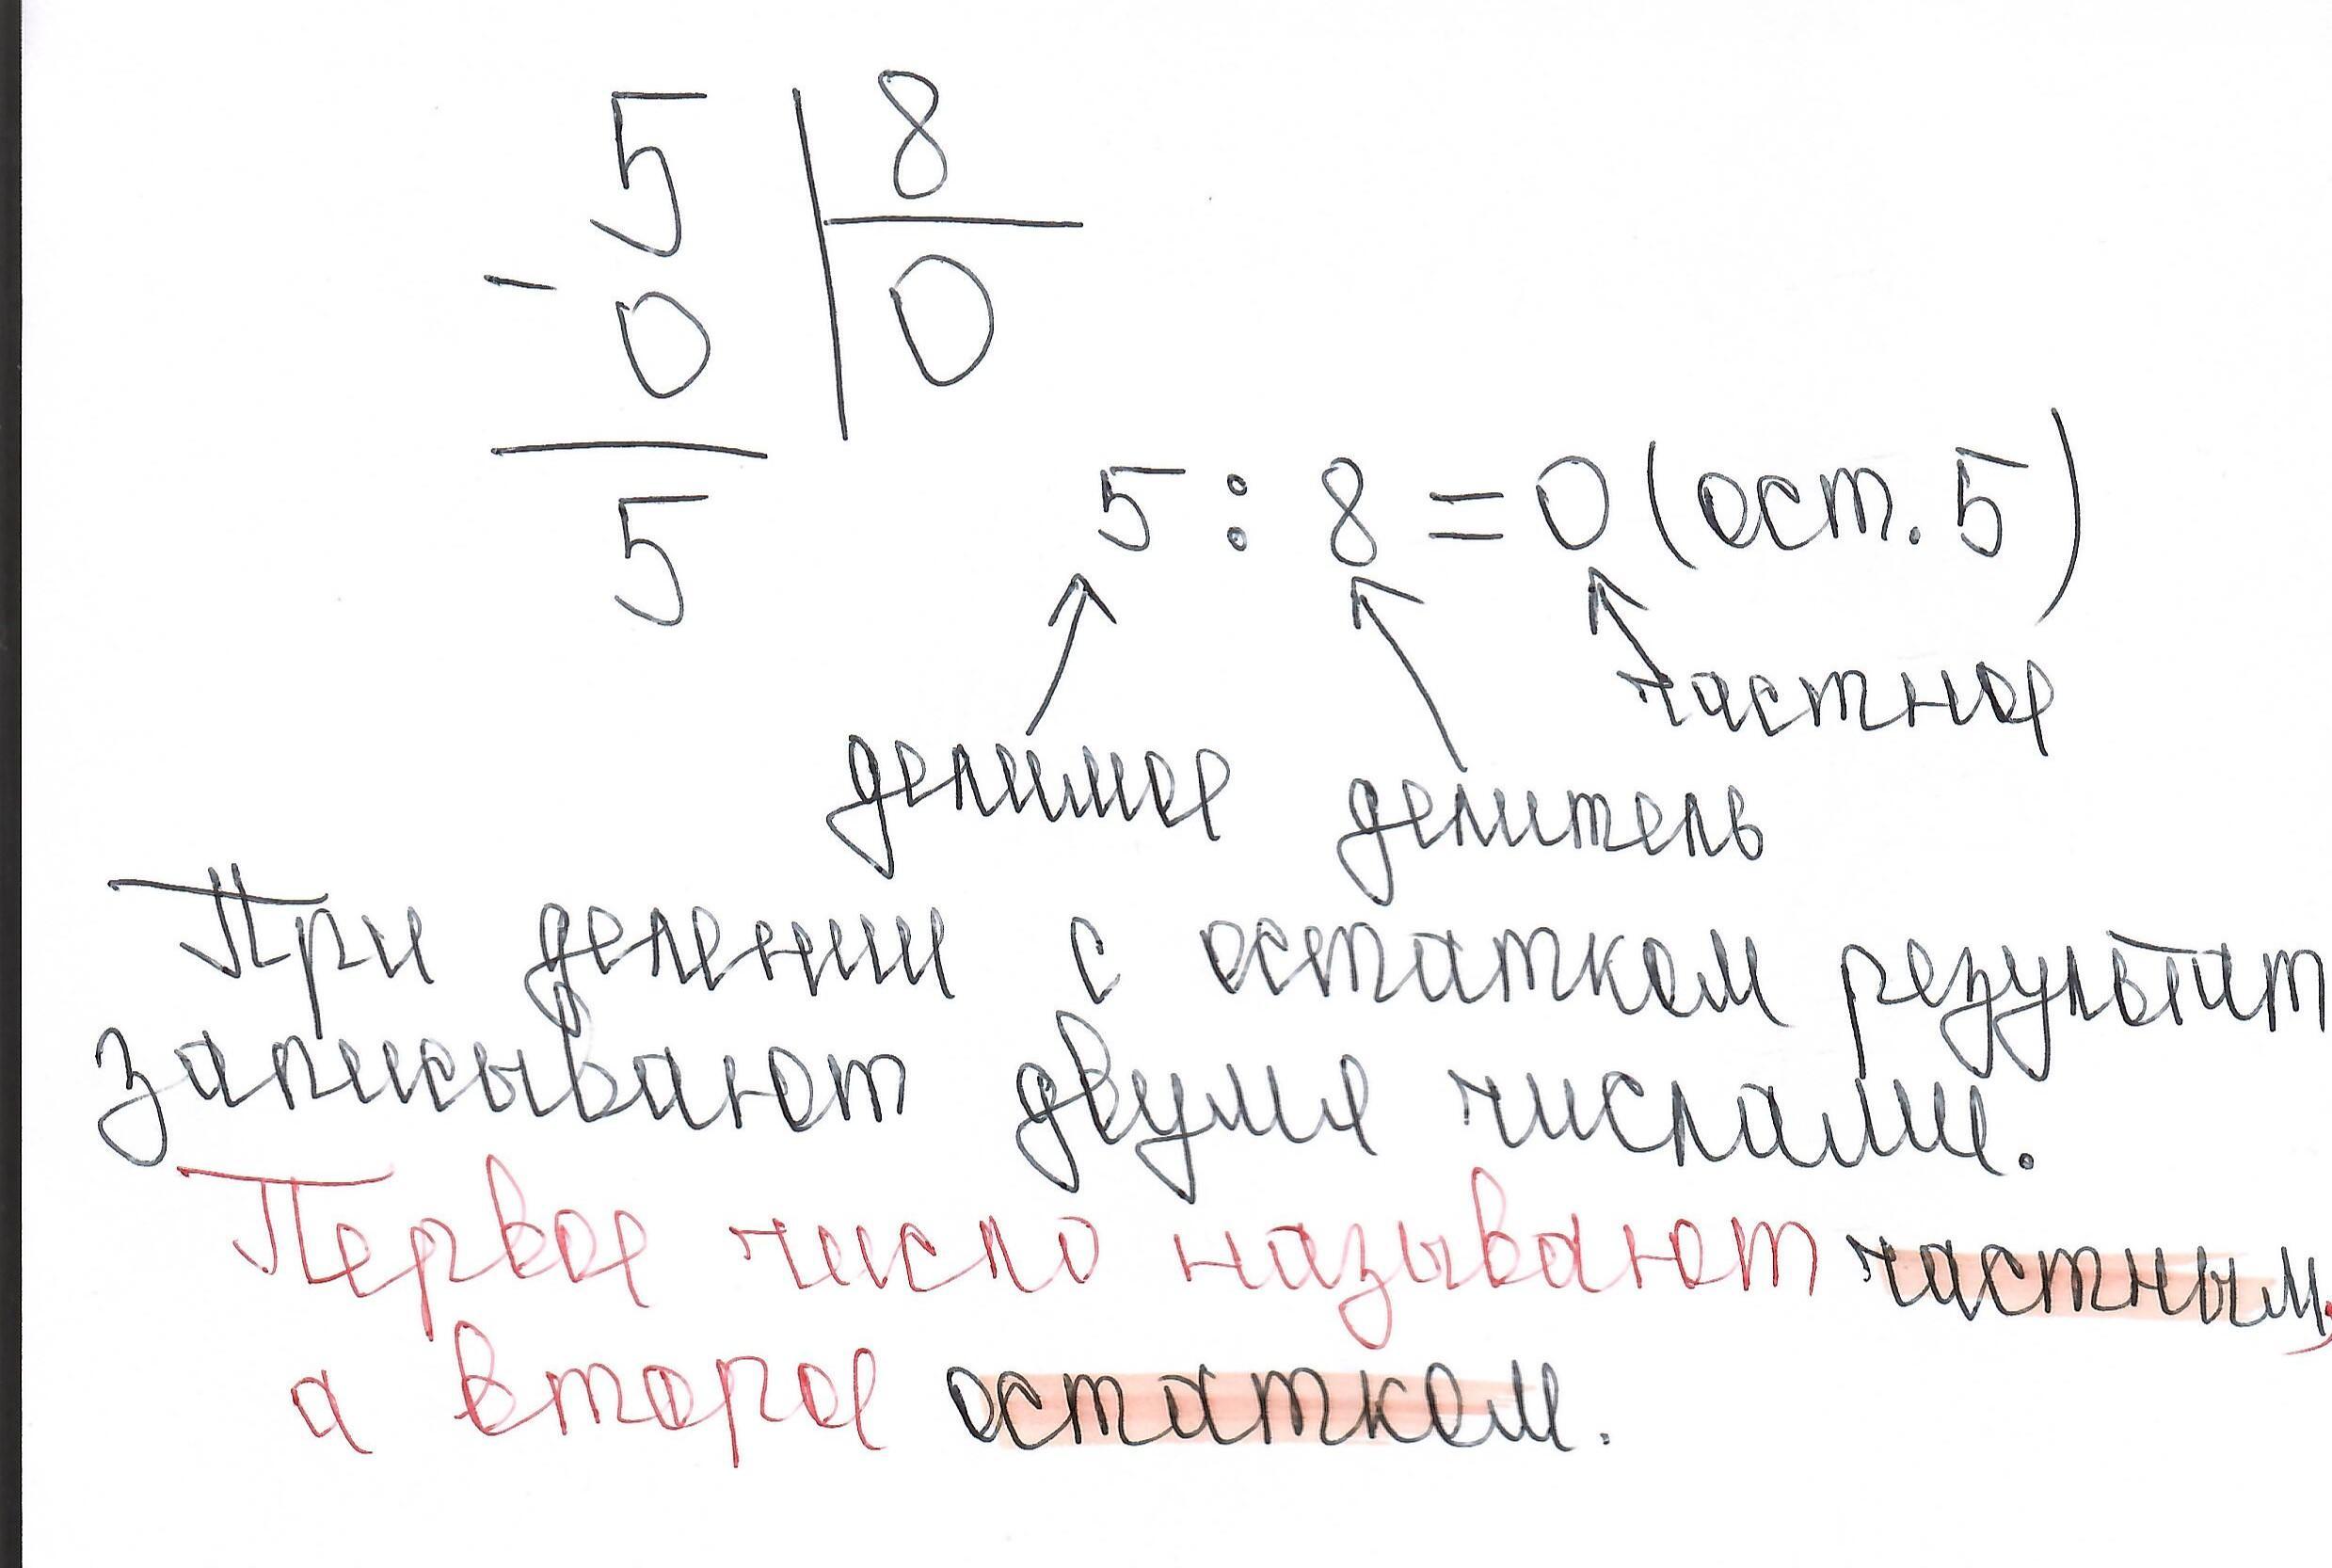 5 8
- 0 0
5
5 : 8 = 0 (ост. 5)
частное
делимое делитель
При делении с остатком результат
записывают двумя числами.
Первое число называют частным,
а второе остатком.